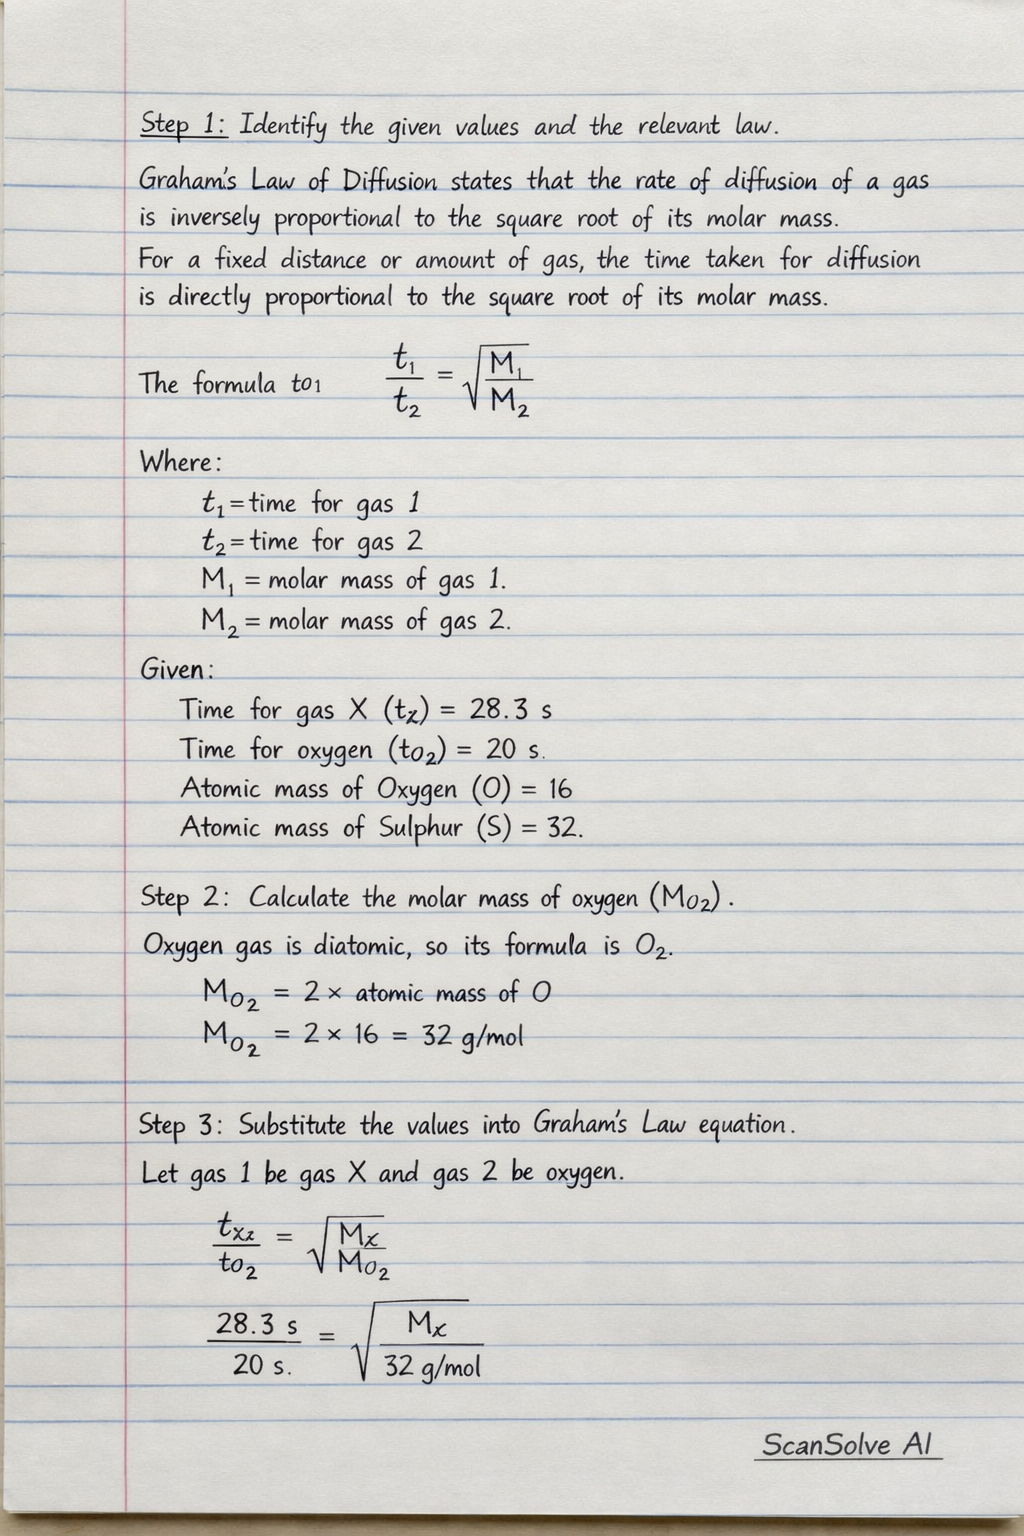 Step 1: Identify the given values and the relevant law.
Graham's Law of Diffusion states that the rate of diffusion of a gas
is inversely proportional to the square root of its molar mass.
For a fixed distance or amount of gas, the time taken for diffusion
is directly proportional to the square root of its molar mass.
The formula to₁ t₁/t₂ = √(M₁/M₂)
Where:
t₁ = time for gas 1
t₂ = time for gas 2
M₁ = molar mass of gas 1.
M₂ = molar mass of gas 2.
Given:
Time for gas X (t_z) = 28.3 s
Time for oxygen (to₂) = 20 s.
Atomic mass of Oxygen (O) = 16
Atomic mass of Sulphur (S) = 32.
Step 2: Calculate the molar mass of oxygen (Mo₂).
Oxygen gas is diatomic, so its formula is O₂.
Mo₂ = 2 × atomic mass of O
Mo₂ = 2 × 16 = 32 g/mol
Step 3: Substitute the values into Graham's Law equation.
Let gas 1 be gas X and gas 2 be oxygen.
t_xz/to₂ = √(Mx/Mo₂)
28.3 s/20 s. = √(Mx/32 g/mol)
ScanSolve AI